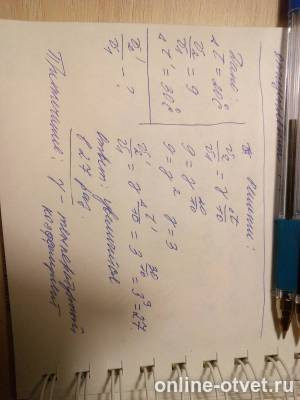 Дано:
ΔT = 20°C
v₂/v₁ = 9
ΔT' = 30°C
v₂'/v₁ - ?
Решение:
v₂/v₁ = γ^(ΔT/10)
9 = γ^(20/10)
9 = γ² γ = 3
v₂'/v₁ = γ^(ΔT'/10) = 3^(30/10) = 3³ = 27.
Ответ: увеличится
в 27 раз.
Примечание: γ - температурный
коэффициент
online-otvet.ru